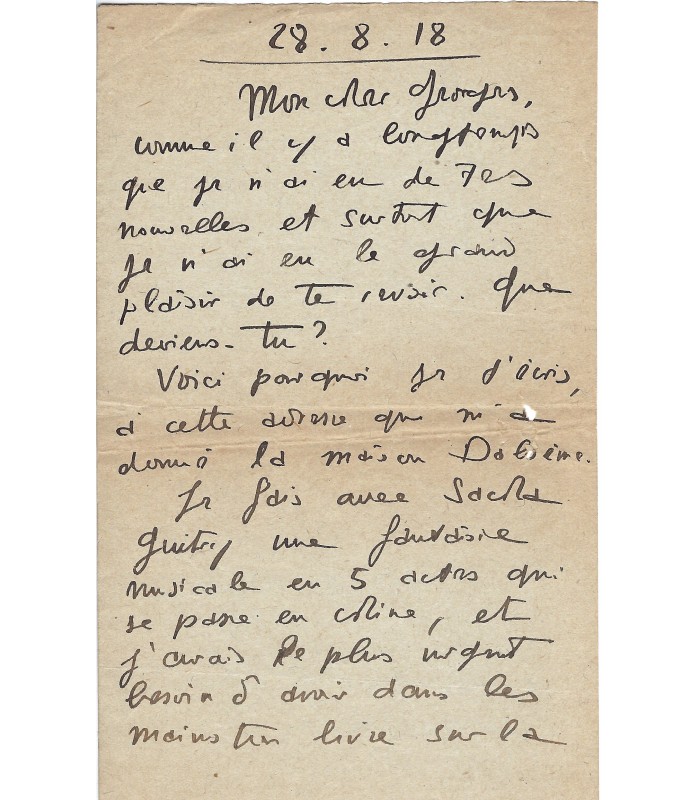 28.8.18
Mon cher Georges,
comme il y a longtemps
que je n'ai eu de tes
nouvelles et surtout que
je n'ai eu le grand
plaisir de te revoir. Que
deviens-tu?
Voici pourquoi je t'écris,
à cette adresse que m'a
donné la maison
Je fais avec Sacha
Guitry une fantaisie
musicale en 5 actes qui
se passe en Chine, et
j'aurais le plus urgent
besoin d'avoir dans les
mains ton livre sur la